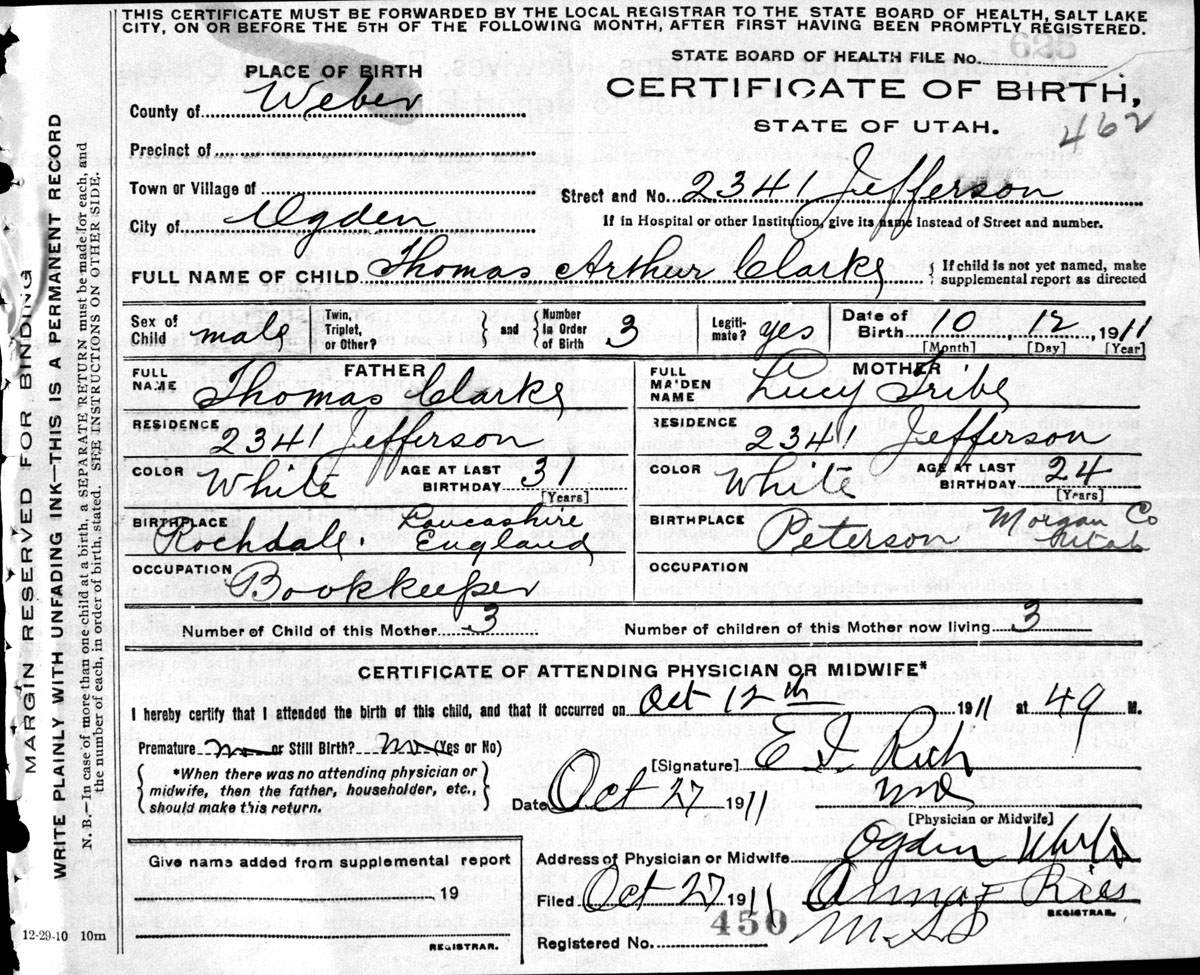 THIS CERTIFICATE MUST BE FORWARDED BY THE LOCAL REGISTRAR TO THE STATE BOARD OF HEALTH, SALT LAKE
CITY, ON OR BEFORE THE 5TH OF THE FOLLOWING MONTH, AFTER FIRST HAVING BEEN PROMPTLY REGISTERED.
STATE BOARD OF HEALTH FILE No. 625
CERTIFICATE OF BIRTH,
STATE OF UTAH.
462
PLACE OF BIRTH
County of Weber
Precinct of
Town or Village of
Street and No. 2341 Jefferson
City of Ogden
If in Hospital or other Institution, give its name instead of Street and number.
FULL NAME OF CHILD Thomas Arthur Clarke
If child is not yet named, make
supplemental report as directed
Sex of Child male
Twin, Triplet, or Other?
and Number in Order of Birth 3
Legitimate? yes
Date of Birth 10 12 1911
[Month] [Day] [Year]
FATHER
FULL NAME Thomas Clarke
MOTHER
FULL MAIDEN NAME Lucy Tribe
RESIDENCE 2341 Jefferson
RESIDENCE 2341 Jefferson
COLOR White AGE AT LAST BIRTHDAY 31 [Years]
COLOR White AGE AT LAST BIRTHDAY 24 [Years]
BIRTHPLACE Rochdale Lancashire England
BIRTHPLACE Peterson Morgan Co Utah
OCCUPATION Bookkeeper
OCCUPATION
Number of Child of this Mother 3
Number of children of this Mother now living 3
CERTIFICATE OF ATTENDING PHYSICIAN OR MIDWIFE*
I hereby certify that I attended the birth of this child, and that it occurred on Oct 12th 1911 at M.
Premature no or Still Birth? no (Yes or No)
*When there was no attending physician or
midwife, then the father, householder, etc.,
should make this return.
[Signature] E I Rich
MD
[Physician or Midwife]
Date Oct 27 1911
Give name added from supplemental report
19
REGISTRAR.
Address of Physician or Midwife Ogden Utah
Filed Oct 27 1911 Anna F Ries
REGISTRAR.
Registered No. 450
12-29-10 10m
MARGIN RESERVED FOR BINDING
WRITE PLAINLY WITH UNFADING INK—THIS IS A PERMANENT RECORD
N. B.—In case of more than one child at a birth, a SEPARATE RETURN must be made for each, and
the number of each, in order of birth, stated. SEE INSTRUCTIONS ON OTHER SIDE.